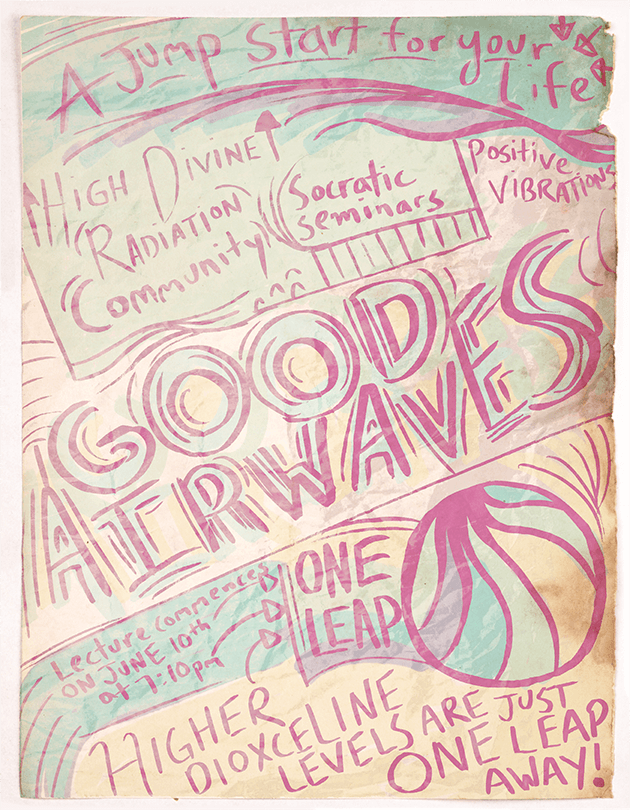 A Jump Start for your
Life
High Divine
Radiation
Community
Socratic
Seminars
Positive
Vibrations
GOODE
AIRWAVES
ONE
LEAP
Lecture commences
ON JUNE 10th
at 7:10pm
HIGHER
DIOXCELINE
LEVELS ARE JUST
ONE LEAP
AWAY!